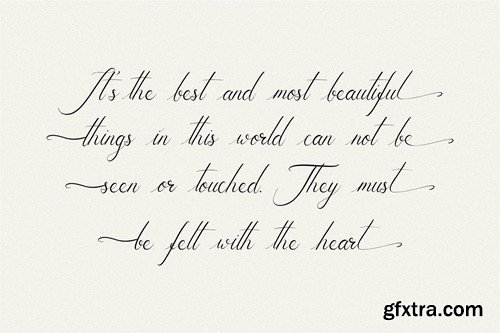 It's the best and most beautiful
things in this world can not be
seen or touched. They must
be felt with the heart
gfxtra.com